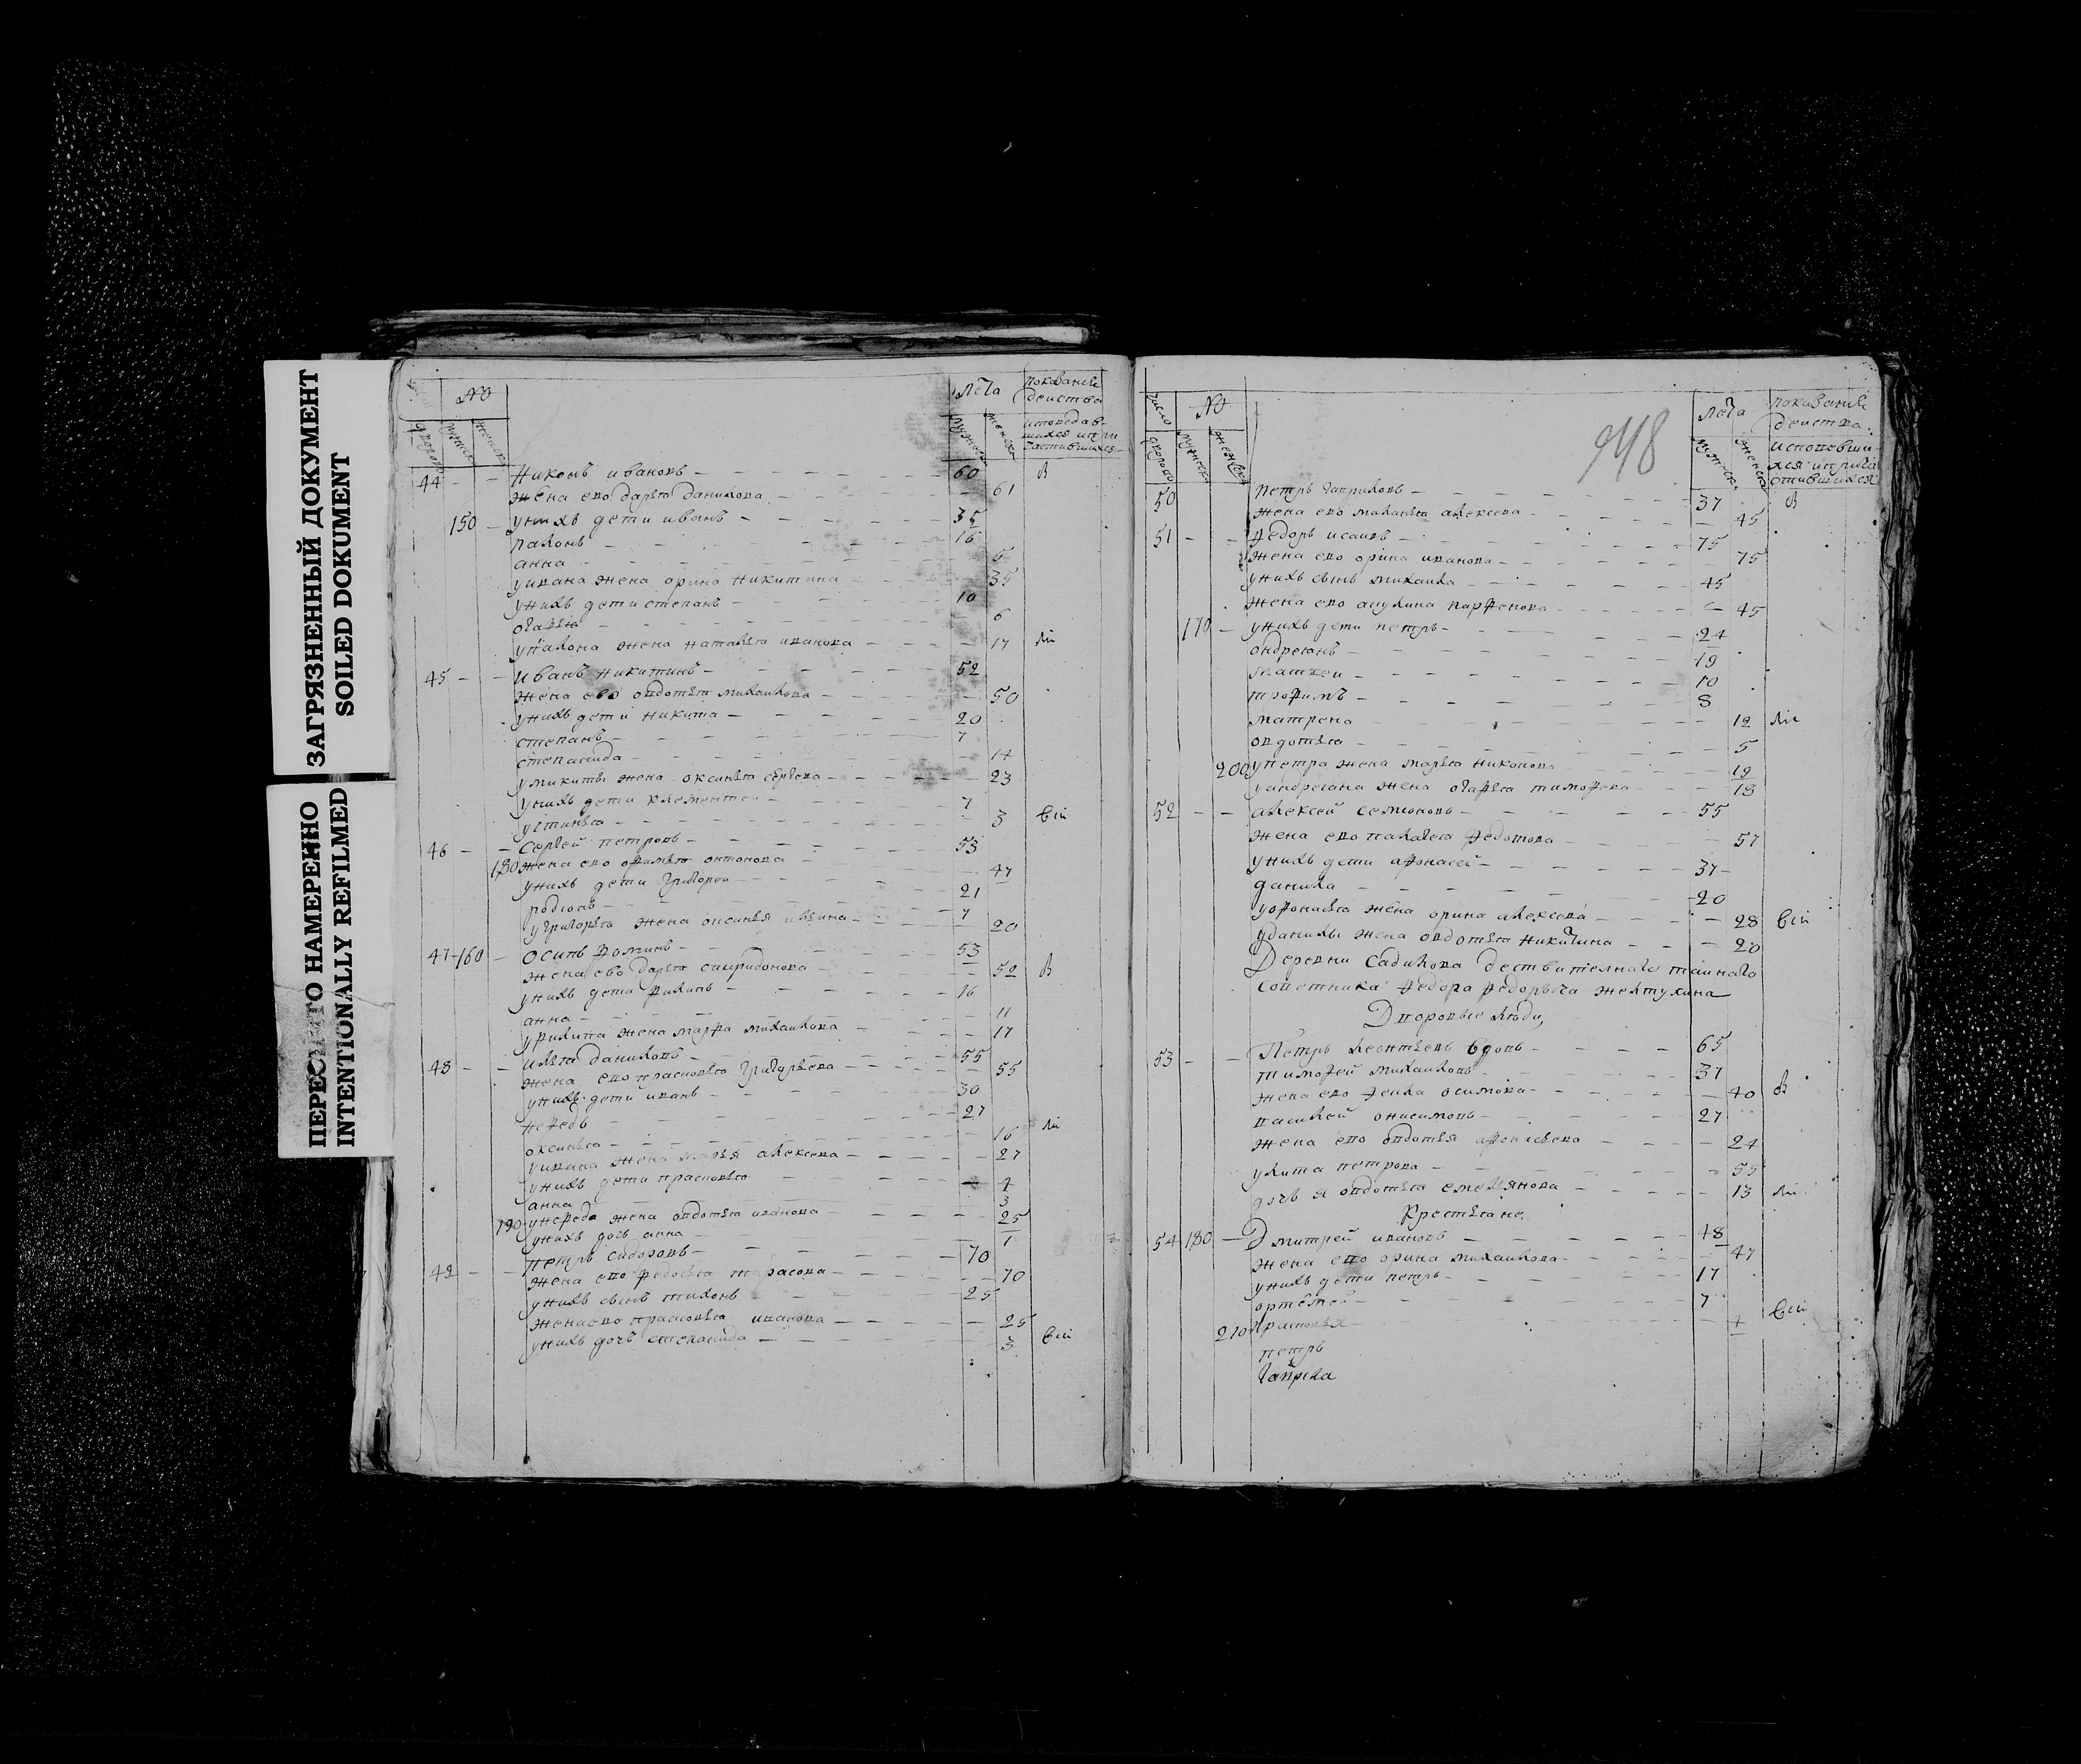 ЗАГРЯЗНЕННЫЙ ДОКУМЕНТ
SOILED DOKUMENT
ПЕРЕСНЯТО НАМЕРЕННО
INTENTIONALLY REFILMED
№ лета показание действа
мужеска женска
44 Никонъ ивановъ 60
жена ево дарья данилова 61
150 у нихъ дети иванъ 35
палонъ 16
анна 5
у ивана жена орина никитина 35
у нихъ дети степанъ 10
огафья 6
у палона жена наталья иванова 17
45 иванъ никитинъ 52
жена ево овдотья михаилова 50
у нихъ дети никита 20
степанъ 7
степанида 14
у микиты жена оксинья сергева 23
у нихъ дети клементей 7
устинья 3
46 Сергей петровъ 53
180 жена ево офимья онтонова 47
у нихъ дети григореи 21
родионъ 7
у григорья жена оксинья ильина 20
47 160 осипъ фоминъ 53
жена ево дарья спиридонова 52
у нихъ дети филипъ 16
анна 11
у филипа жена марфа михаилова 17
48 илья даниловъ 55
жена ево прасковья григорьева 55
у нихъ дети иванъ 30
нефедъ 27
оксинья 16
у ивана жена марья алексева 27
у нихъ дети прасковья 4
анна 3
190 у нефеда жена овдотья иванова 25
у нихъ дочь анна 1
49 петръ сидоровъ 70
жена ево федосья тарасова 70
у нихъ сынъ тихонъ 25
жена ево прасковья иванова 25
у нихъ дочь степанида 3
948
число № лета показание действа
50 петръ гавриловъ 37
жена ево маланья алексева 45
51 федоръ исаивъ 75
жена ево орина иванова 75
у нихъ сынъ михаила 45
жена ево акулина парфенова 45
170 у нихъ дети петръ 24
ондреянъ 19
матвеи 10
трофимъ 8
матрена 12
овдотья 5
200 у петра жена марья никонова 19
у андреяна жена огафья тимофева 18
52 алексей семионовъ 55
жена ево палагея федотова 57
у нихъ дети афонасей 37
данила 20
у офонасья жена орина алексева 28
у данилы жена овдотья никитина 20
Деревни Садикова дествителнаго таинаго
советника федора федорыча желтухина
Дворовые люди
53 Петръ леонтьевъ вдовъ 65
тимофей михаиловъ 37
жена ево фекла осипова 40
василей онисимовъ 27
жена ево овдотья афонасьева 24
улита петрова 55
дочь я овдотья емельянова 13
Крестьяне
54 180 Дмитрей ивановъ 48
жена ево орина михаилова 47
у нихъ дети петръ 17
ортемей 7
210 прасковья
петръ
гаврила